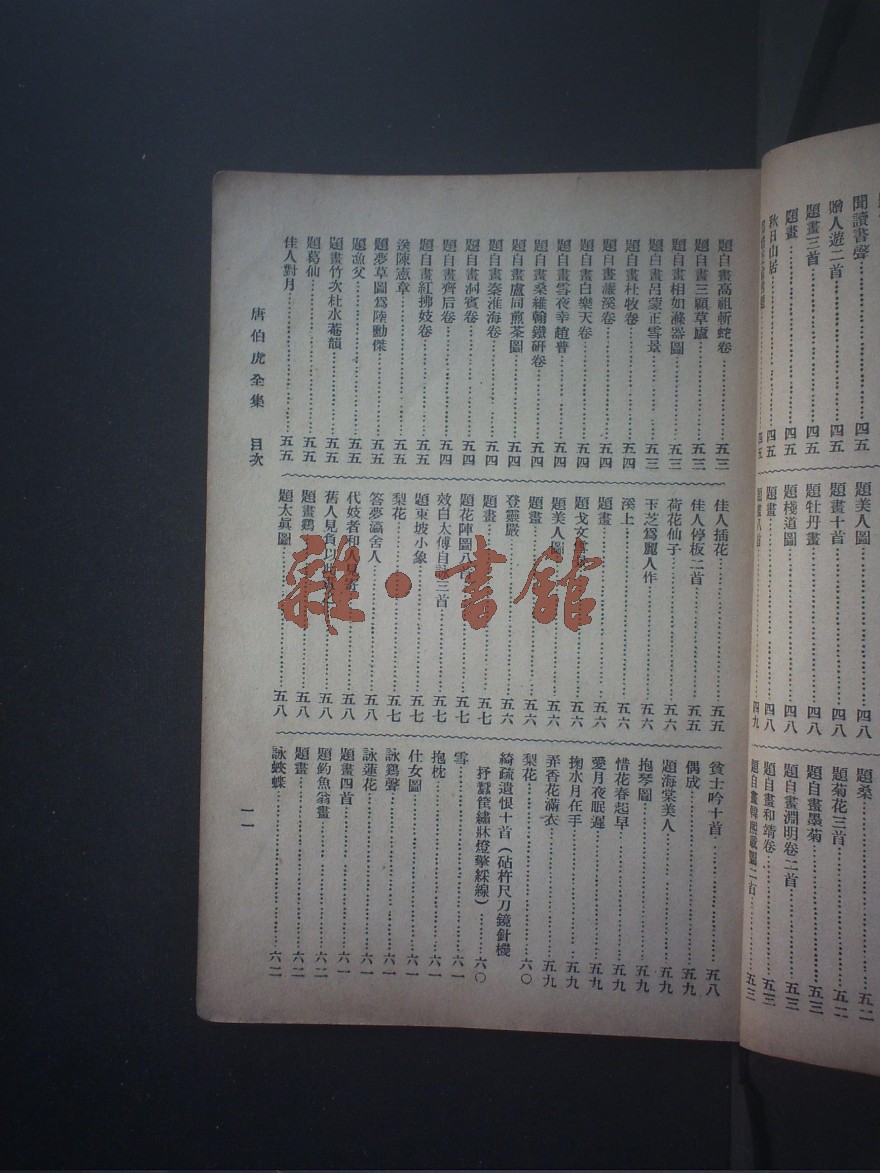 聞讀書聲……四五
贈人遊二首……四五
題畫三首……四五
題畫……四五
秋日山居……四五
題美人圖……四八
題畫十首……四八
題牡丹畫……四八
題棧道圖……四八
題畫……四八
題畫八首……四九
題桑……五二
題菊花三首……五二
題自畫墨菊……五三
題自畫淵明卷二首……五三
題自畫和靖卷……五三
題自畫韓熙載圖二首……五三
題自畫高祖斬蛇卷……五三
題自畫三顧草廬……五三
題自畫相如滌器圖……五三
題自畫呂蒙正雪景……五三
題自畫杜牧卷……五四
題自畫濂溪卷……五四
題自畫白樂天卷……五四
題自畫雪夜幸趙普……五四
題自畫桑維翰鐵硏卷……五四
題自畫盧同煎茶圖……五四
題自畫秦淮海卷……五四
題自畫洞賓卷……五四
題自畫齊后卷……五四
題自畫紅拂妓卷……五五
涘陳憲章……五五
題夢草圖爲陸勳傑……五五
題漁父……五五
題畫竹次杜水菴韻……五五
題葛仙……五五
佳人對月……五五
佳人插花……五五
佳人停板二首……五五
荷花仙子……五六
玉芝爲麗人作……五六
溪上……五六
題畫……五六
題戈文……五六
題美人圖……五六
題畫……五六
登靈巖……五六
題畫……五七
題花陣圖八……五七
效白太傅自詠三首……五七
題東坡小象……五七
梨花……五七
答夢瀛舍人……五八
代妓者和人見寄……五八
舊人見負以……五八
題畫鷄……五八
題太眞圖……五八
貧士吟十首……五八
偶成……五九
題海棠美人……五九
抱琴圖……五九
惜花春起早……五九
愛月夜眠遲……五九
掬水月在手……五九
弄香花滿衣……五九
梨花……六〇
綺疏遺恨十首（砧杵尺刀鏡針機
抒蠶筐繡牀燈擎綵線）……六〇
雪……六一
抱枕……六一
仕女圖……六一
詠鷄聲……六一
詠蓮花……六一
題畫四首……六一
題釣魚翁畫……六二
題畫……六二
詠蛺蝶……六二
唐伯虎全集 目次
一一
雜·書館